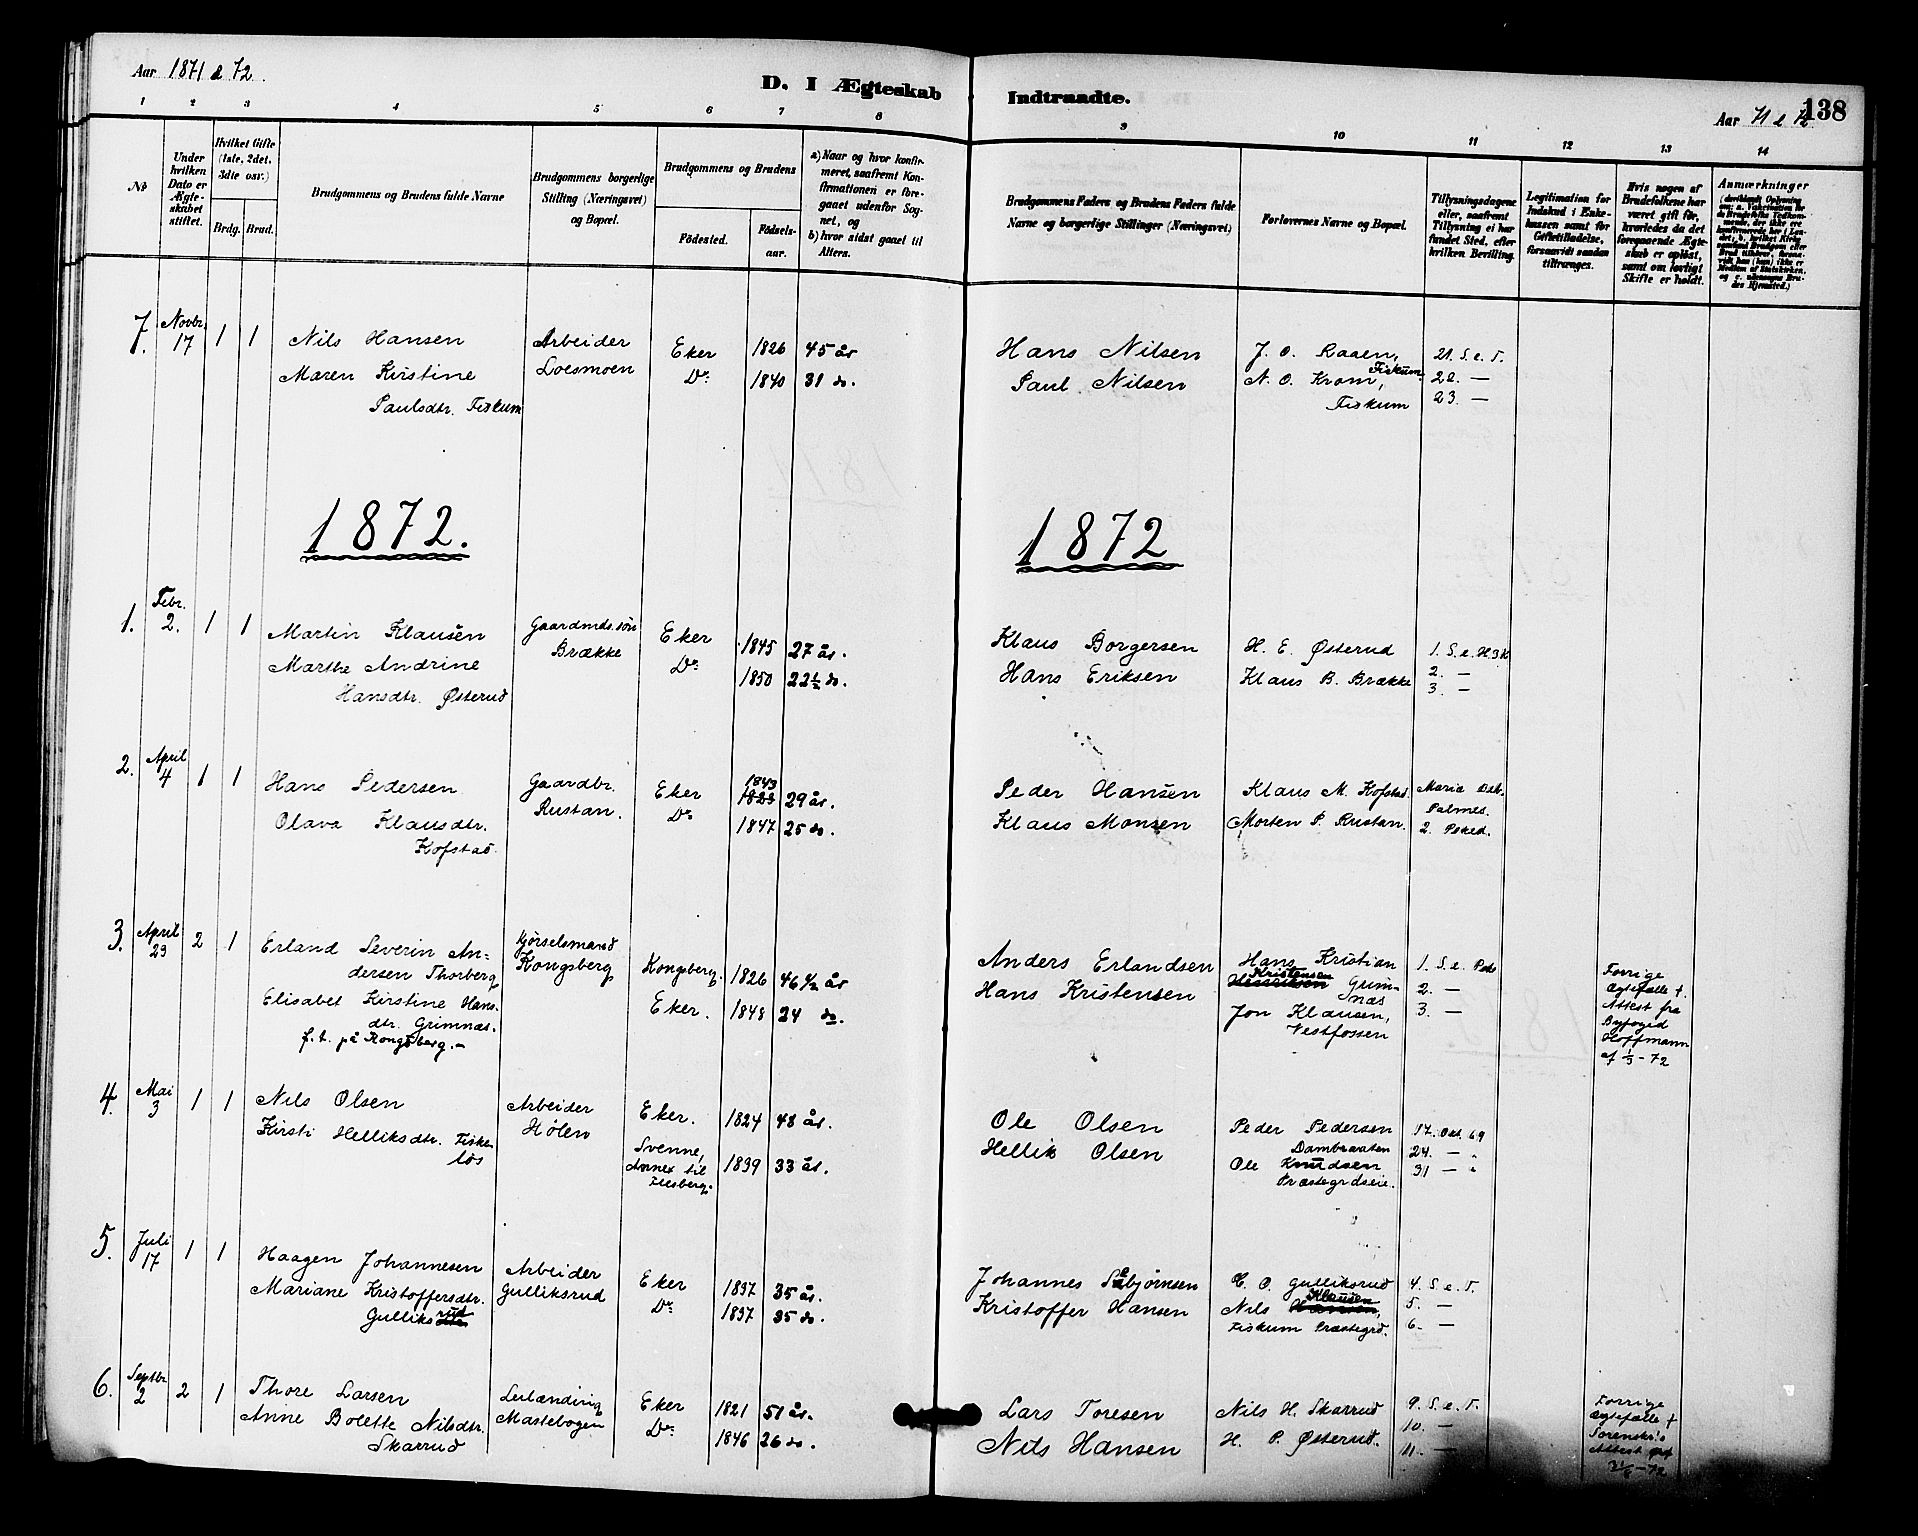 Aar 1871 & 72.
D. I Ægteskab
Indtraadte.
Aar 71 & 72
138
1 2 3 4 5 6 7 8
9 10 11 12 13 14
№
Under hvilken Dato er Ægteskabet stiftet.
Hvilket Gifte (1ste, 2det, 3die osv.)
Brdg. Brud.
Brudgommens og Brudens fulde Navne
Brudgommens borgerlige Stilling (Næringsvei) og Bopæl.
Brudgommens og Brudens
Fødested.
Fødselsaar.
a) Naar og hvor konfirmeret, saafremt Konfirmationen er foregaaet udenfor Sognet, og
b) hvor sidst gaaet til Alters.
Brudgommens Faders og Brudens Faders fulde Navne og borgerlige Stillinger (Næringsvei)
Forlovernes Navne og Bopæl.
Tillysningsdagene eller, saafremt Tillysning ei har fundet Sted, efter hvilken Bevilling.
Legitimation for Indskud i Enkekassen samt for Giftetilladelse, forsaavidt saadan tiltrænges.
Hvis nogen af Brudefolkene har været gift før, hvorledes da det foregaaende Ægteskab er opløst, samt om lovligt Skifte er holdt.
Anmærkninger
7. Novbr. 17 1 1 Nils Hansen Arbeider Eker 1826 45 år Hans Nilsen J. O. Raaen, 21. S. e. T.
Maren Kirstine Loesmoen Do. 1840 31 do. Paul Nilsen Fiskum. N. O. Krom, 22. —
Paulsdtr. Fiskum Fiskum 23. —
1872. 1872
1. Febr. 2. 1 1 Martin Klausen Gaardmds. søn Eker 1845 27 år. Klaus Borgersen H. E. Østerud 1. S. e. H3K
Marthe Andrine Brække Do. 1850 22½ do. Hans Eriksen Klaus B. Brække 2. —
Hansdtr. Østerud 3. —
2. April 4 1 1 Hans Pedersen Gaardbr. Eker 1843 1823 29 år. Peder Hansen Klaus M. Kofstad Maria
Olava Klausdtr. Rustan. Do. 1847 25 do. Klaus Monsen Morten P. Rustan. Palmes.
Kofstad. 2. Psked.
3. April 23 2 1 Erland Severin An- Kjørselsmand Kongsberg. 1826 46½ år Anders Erlandsen Hans Kristian 1. S. e. Pske
dersen Thorberg Kongsberg Kristensen Henriksen Grim- Forrige
Elisabet Kirstine Hans- Eker. 1848 24 do. Hans Kristensen næs 2. — ægtefælle †.
dtr. Grimnæs. Jon Klausen, 3. — Attest fra
f. t. på Kongsberg.— Vestfossen Byfoged
Hoffmann
af 1/3 - 72
4. Mai 3 1 1 Nils Olsen Arbeider Eker. 1824 48 år. Ole Olsen Peder Pedersen 17. Okt. 69
Kirsti Helliksdtr. Fiske- Hølen Svenne, 1839 33 år. Hellik Olsen Dambraaten 24. — "
løs Annex til Ole Knudsen 31 — "
Flesberg. Præstegrdseie.
5. Juli 17 1 1 Haagen Johannesen Arbeider Eker 1837 35 år. Johannes Sebjørnsen C. O. Gulliksrud 4. S. e. T.
Mariane Kristoffersdtr. Gulliksrud Do. 1837 35 do. Kristoffer Hansen Nils Klausen Hansen, 5. —
Gulliksrud Fiskum Præstegrd. 6. —
6. Septbr. 2 2 1 Thore Larsen Leilænding Eker 1821 51 år. Lars Toresen Nils H. Skarrud 9. S. e. T. Forrige
Anne Bolette Nilsdtr. Mastebogen Do. 1846 26 do. Nils Hansen H. P. Østerud. 10. — ægtefælle †
Skarrud 11. — Sorenskr.s
Attest
31/8 - 72